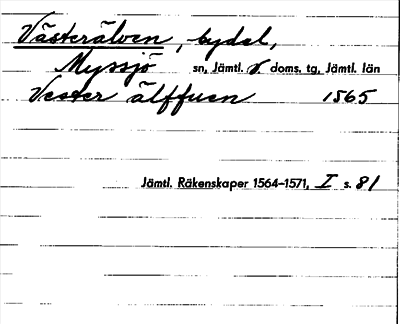 Västerälven, bydel,
Myssjö sn, Jämtl. v. doms. tg, Jämtl. län
Vester älffuen 1565
Jämtl. Räkenskaper 1564-1571, I s. 81